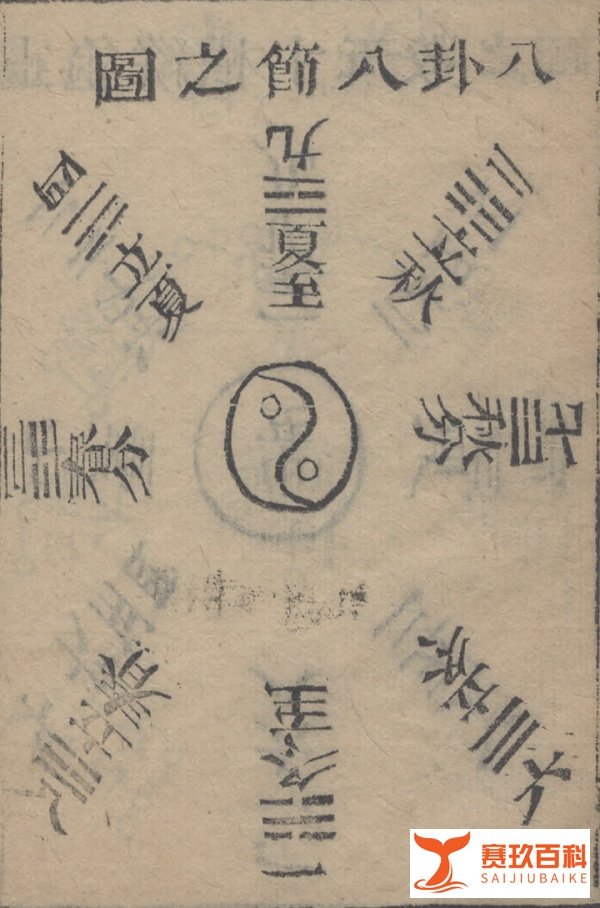 八卦八節之圖
九 夏至
二 立秋
七 秋分
六 立冬
一 冬至
八 立春
三 春分
四 立夏
赛玖百科
SAIJIUBAIKE